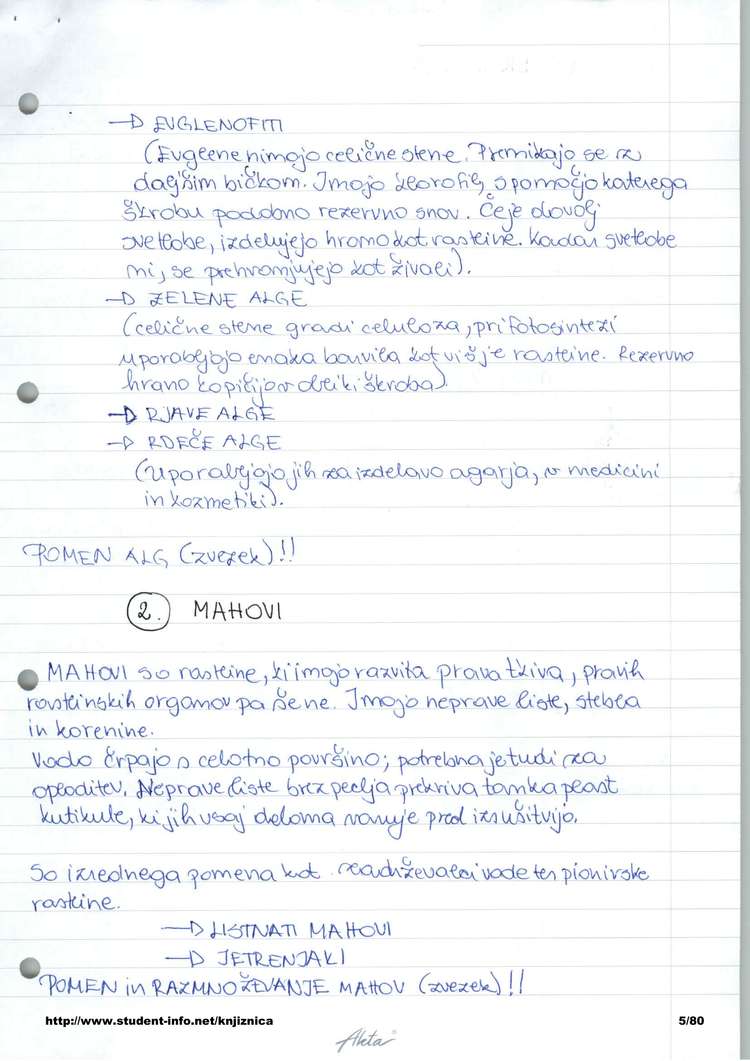 → EVGLENOFITI
(Evglene nimajo celične stene. Premikajo se z
daljšim bičkom. Imajo klorofil, s pomočjo katerega
škrobu podobno rezervno snov. Če je dovolj
svetlobe, izdelujejo hrano kot rastline. Kadar svetlobe
ni, se prehranjujejo kot živali).
→ ZELENE ALGE
(celične stene gradi celuloza, pri fotosintezi
uporabljajo enaka barvila kot višje rastline. Rezervno
hrano kopičijo v obliki škroba).
→ RJAVE ALGE
→ RDEČE ALGE
(Uporabljajo jih za izdelavo agarja, v medicini
in kozmetiki).
POMEN ALG (zvezek)!!
2. MAHOVI
MAHOVI so rastline, ki imajo razvita prava tkiva, pravih
rastlinskih organov pa še ne. Imajo neprave liste, stebla
in korenine.
Vodo črpajo s celotno površino; potrebna je tudi za
oploditev. Neprave liste brez peclja prekriva tanka plast
kutikule, ki jih vsaj deloma varuje pred izsušitvijo.
So izrednega pomena kot zadrževalci vode ter pionirske
rastline.
→ LISTNATI MAHOVI
→ JETRENJAKI
POMEN in RAZMNOŽEVANJE MAHOV (zvezek)!!
http://www.student-info.net/knjiznica 5/80
Aleta